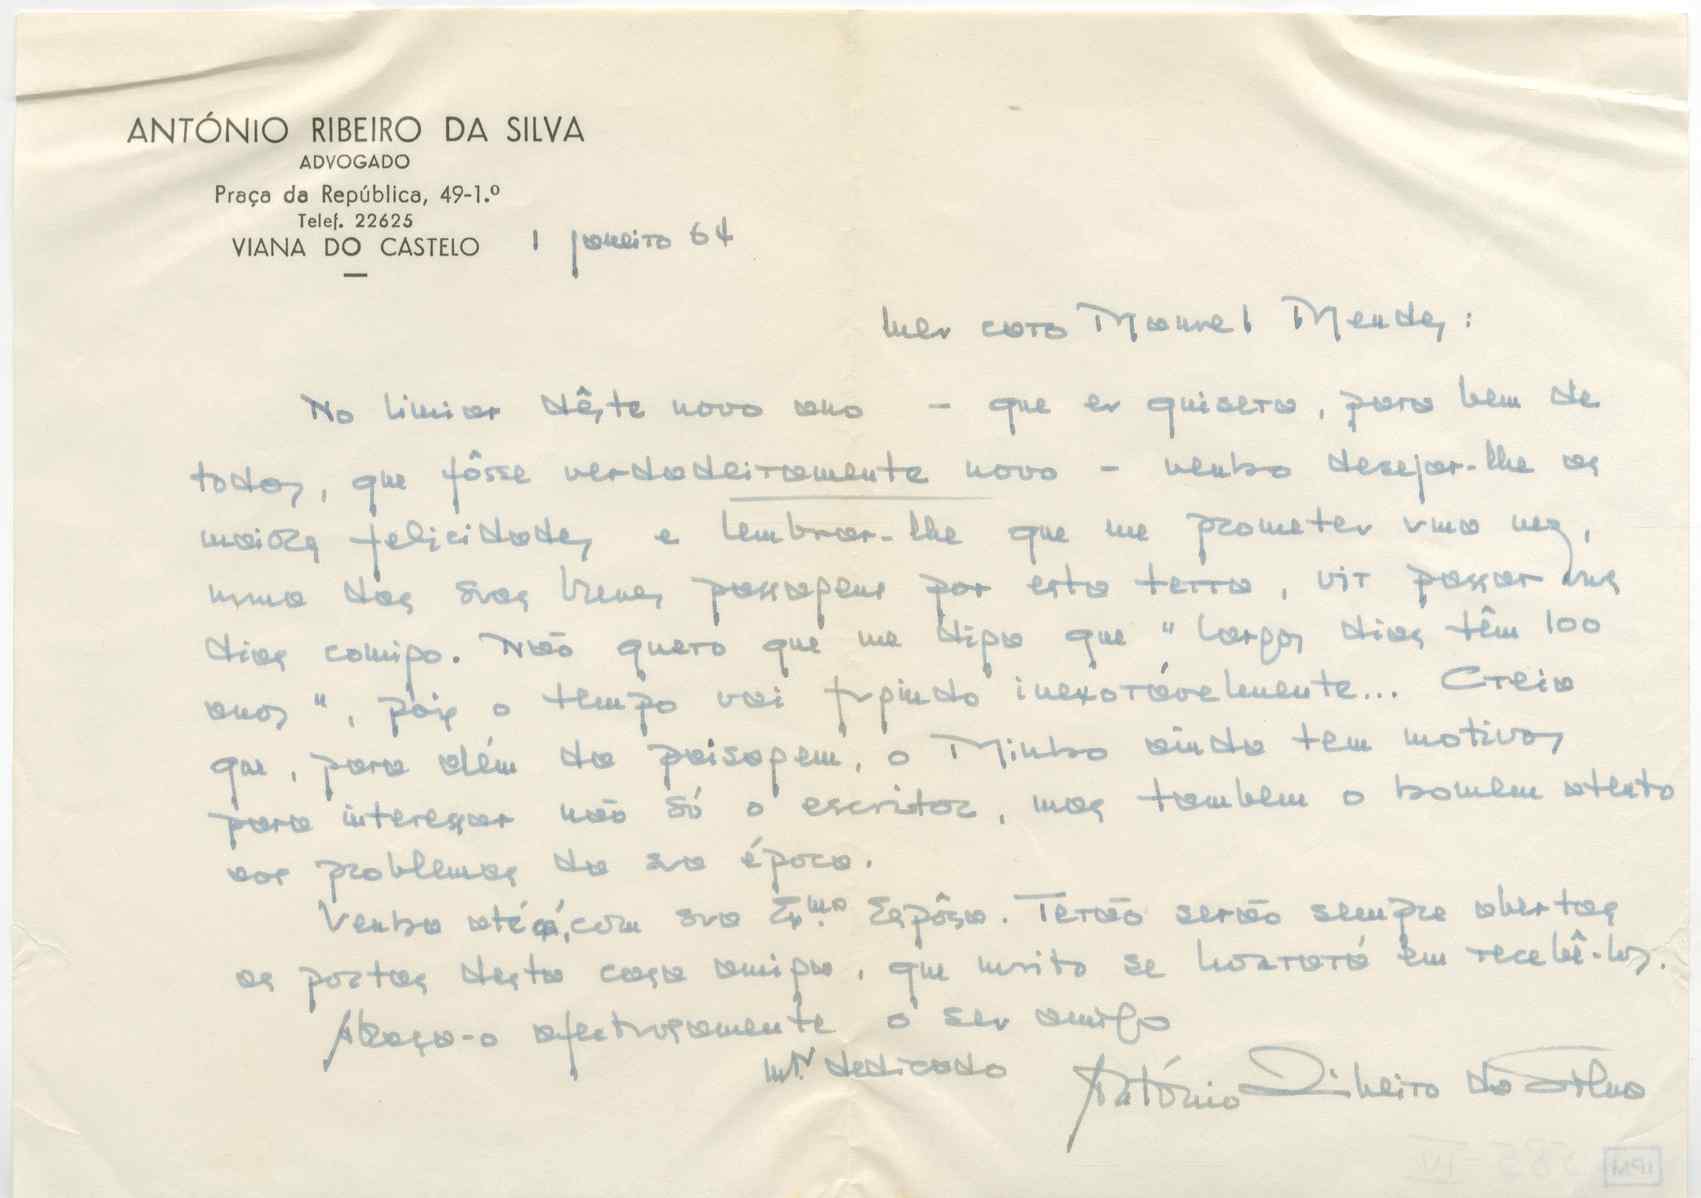 ANTÓNIO RIBEIRO DA SILVA
ADVOGADO
Praça da República, 49-1.º
Telef. 22625
VIANA DO CASTELO 1 janeiro 64
Meu caro Manuel Mendes:
No limiar dêste novo ano – que eu quisera, para bem de
todos, que fôsse verdadeiramente novo – venho desejar-lhe as
maiores felicidades e lembrar-lhe que me prometeu uma vez,
numa das suas breves passagens por esta terra, vir passar uns
dias comigo. Não quero que me diga que "largos dias têm 100
anos", pois o tempo vai fugindo inexoràvelmente... Creia
que, para além da paisagem, o Minho ainda tem motivos
para interessar não só o escritor, mas tambem o homem atento
aos problemas da sua época.
Venha até cá, com sua Ex.ma Espôsa. Terão serão sempre abertas
as portas desta casa amiga, que muito se honrará em recebê-los.
Abraça-o afectuosamente o seu amigo
mt.º dedicado António Ribeiro da Silva
IPM